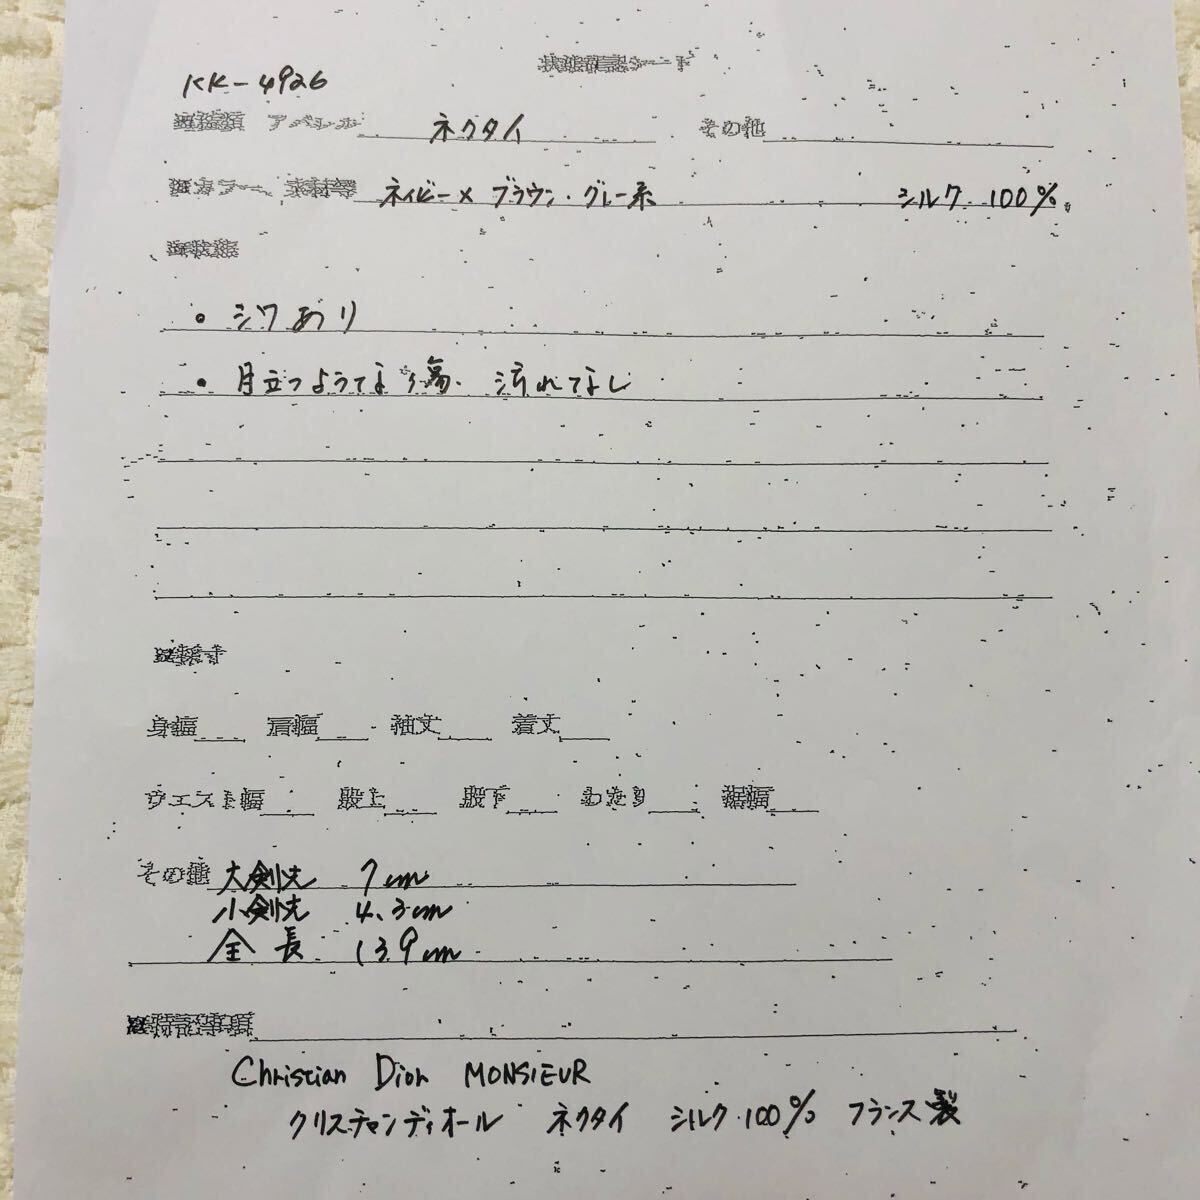 状態確認シート
KK-4926
アパレル ネクタイ その他
カラー・素材等 ネイビー×ブラウン・グレー系 シルク 100%
状態
・シワあり
・目立つような傷、汚れなし
採寸
身幅 肩幅 袖丈 着丈
ウエスト幅 股上 股下 わたり 裾幅
その他 大剣先 7cm
小剣先 4.3cm
全長 139cm
特記事項
Christian Dior MONSIEUR
クリスチャンディオール ネクタイ シルク100% フランス製